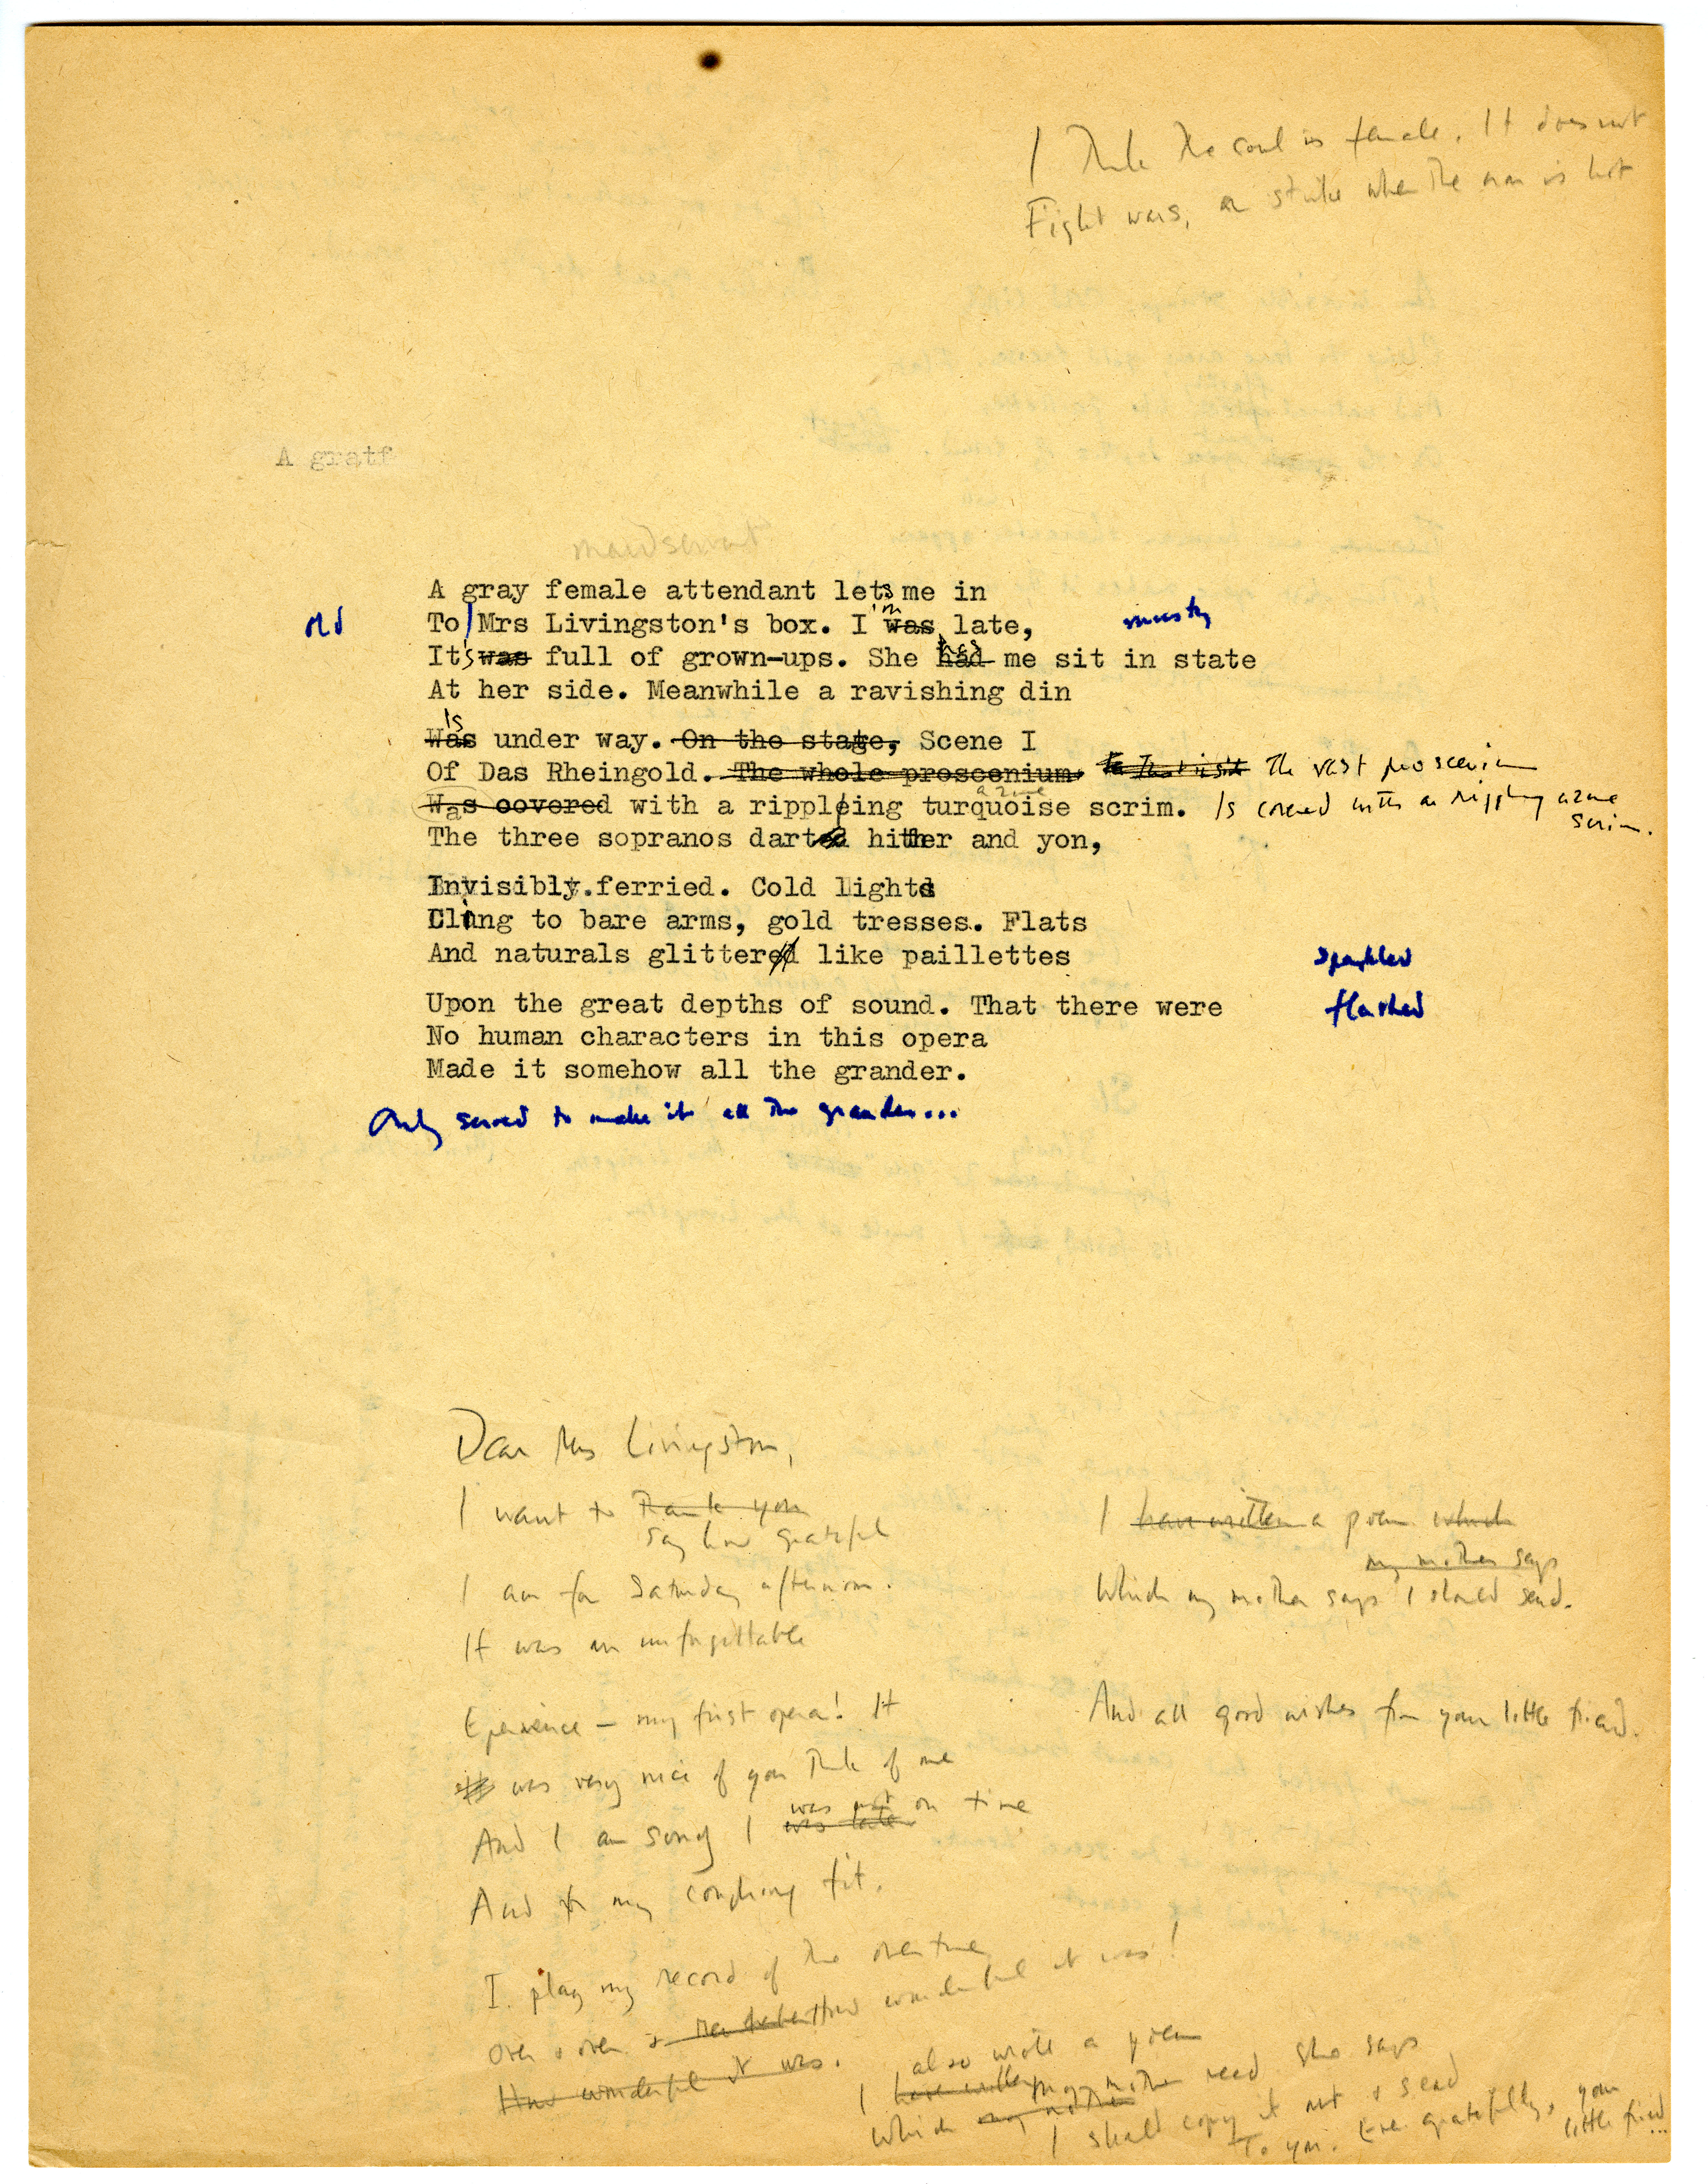 I think the soul is female. It does not
Fight wars, or strike when the iron is hot
A gratf
maidservant
A gray female attendant lets me in
old
To Mrs Livingston's box. I was 'm late,
musty
It was 's full of grown-ups. She had has me sit in state
At her side. Meanwhile a ravishing din
Was Is under way. On the stage, Scene I
Of Das Rheingold. The whole proscenium The vast proscenium
Was covered with a rippling turquoise azure scrim. Is covered with a rippling azure
scrim.
The three sopranos dart hither and yon,
Invisibly ferried. Cold lights
Cling to bare arms, gold tresses. Flats
And naturals glittered like paillettes
sparkled
Upon the great depths of sound. That there were
flashed
No human characters in this opera
Made it somehow all the grander.
Only served to make it all the grander...
Dear Mrs Livingston,
I want to thank you
say how grateful
I am for Saturday afternoon.
It was an unforgettable
Eperience — my first opera! It
was very nice of you think of me
And I am sorry I was late was not on time
And for my coughing fit.
I play my record of the overture
Over & over & remember How wonderful it was!
How wonderful it was.
I have written also wrote a poem
Which my mother my mother read She says
I shall copy it out & send
To you. Ever gratefully, your
little friend...
I have written a poem which
my mother says
Which my mother says I should send.
And all good wishes from your little friend.